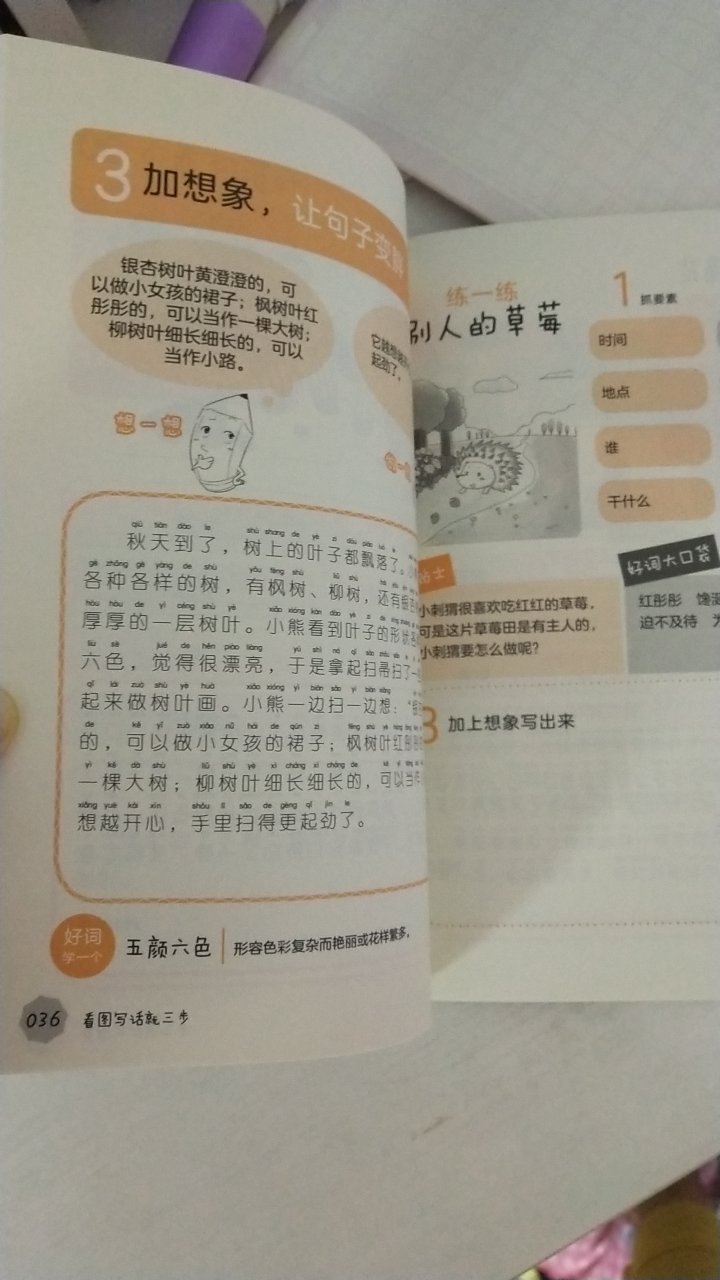 3 加想象，让句子变
银杏树叶黄澄澄的，可
以做小女孩的裙子；枫树叶红
彤彤的，可以当作一棵大树；
柳树叶细长细长的，可以
当作小路。
起劲了。
想一想
qiū tiān dào le shù shang de yè zi dōu piāo luò le
秋天到了，树上的叶子都飘落了。
gè zhǒng gè yàng de shù yǒu fēng shù liǔ shù
各种各样的树，有枫树、柳树，还有银杏
hòu hòu de yì céng shù yè xiǎo xióng kàn dào yè zi de
厚厚的一层树叶。小熊看到叶子的形状
liù sè jué de hěn piào liang yú shì ná qǐ sào zhou
六色，觉得很漂亮，于是拿起扫帚扫了一
qǐ lái zuò shù yè huà xiǎo xióng yì biān sǎo yì biān xiǎng
起来做树叶画。小熊一边扫一边想：“银
de kě yǐ zuò xiǎo nǚ hái de qún zi fēng shù yè hóng
的，可以做小女孩的裙子；枫树叶红
yì kē dà shù liǔ shù yè xì cháng xì cháng de kě yǐ
一棵大树；柳树叶细长细长的，可以当
xiǎng yuè kāi xīn shǒu lǐ sǎo de gèng qǐ jìn le
想越开心，手里扫得更起劲了。
好词
学一个
五颜六色
形容色彩复杂而艳丽或花样繁多。
036 看图写话就三步
练一练
别人的草莓
1 抓要素
时间
地点
谁
干什么
贴士
小刺猬很喜欢吃红红的草莓，
可是这片草莓田是有主人的，
小刺猬要怎么做呢？
好词大口袋
红彤彤 馋
迫不及待
3 加上想象写出来